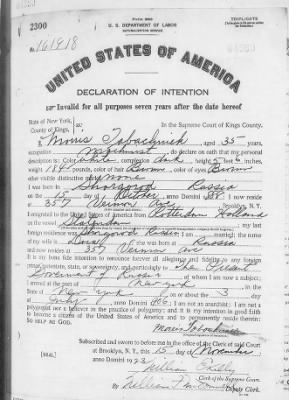 2300
Form 2202
U. S. DEPARTMENT OF LABOR
NATURALIZATION SERVICE
TRIPLICATE
No. 161918
UNITED STATES OF AMERICA
DECLARATION OF INTENTION
Invalid for all purposes seven years after the date hereof
State of New York,
County of Kings,
In the Supreme Court of Kings County.
I, Morris Tabachnick, aged 35 years,
occupation, do declare on oath that my personal
description is: Color White, complexion dark, height 5 feet inches,
weight 184 pounds, color of hair Brown, color of eyes Brown
other visible distinctive marks none
I was born in Shargorod Russia
on the 15 day of October, anno Domini; I now reside
at 357 Vernon Ave, Brooklyn, N. Y.
I emigrated to the United States of America from Rotterdam Holland
on the vessel; my last
foreign residence was Shargorod Russia; married; the name
of my wife is; she was born at Russia
and now resides at 357 Vernon Ave
It is my bona fide intention to renounce forever all allegiance and fidelity to any foreign
prince, potentate, state, or sovereignty, and particularly to The Present
Government of Russia, of whom I am now a subject;
I arrived at the port of New York, in the
State of New York, on or about the day
of July, anno Domini 1906; I am not an anarchist; I am not a
polygamist nor a believer in the practice of polygamy; and it is my intention in good faith
to become a citizen of the United States of America and to permanently reside therein:
SO HELP ME GOD.
Morris Tabachnick
Subscribed and sworn to before me in the office of the Clerk of said Court
[SEAL] at Brooklyn, N. Y., this 15 day of November
anno Domini 1922
William Kelly
Clerk of the Supreme Court.
By William
Deputy Clerk.